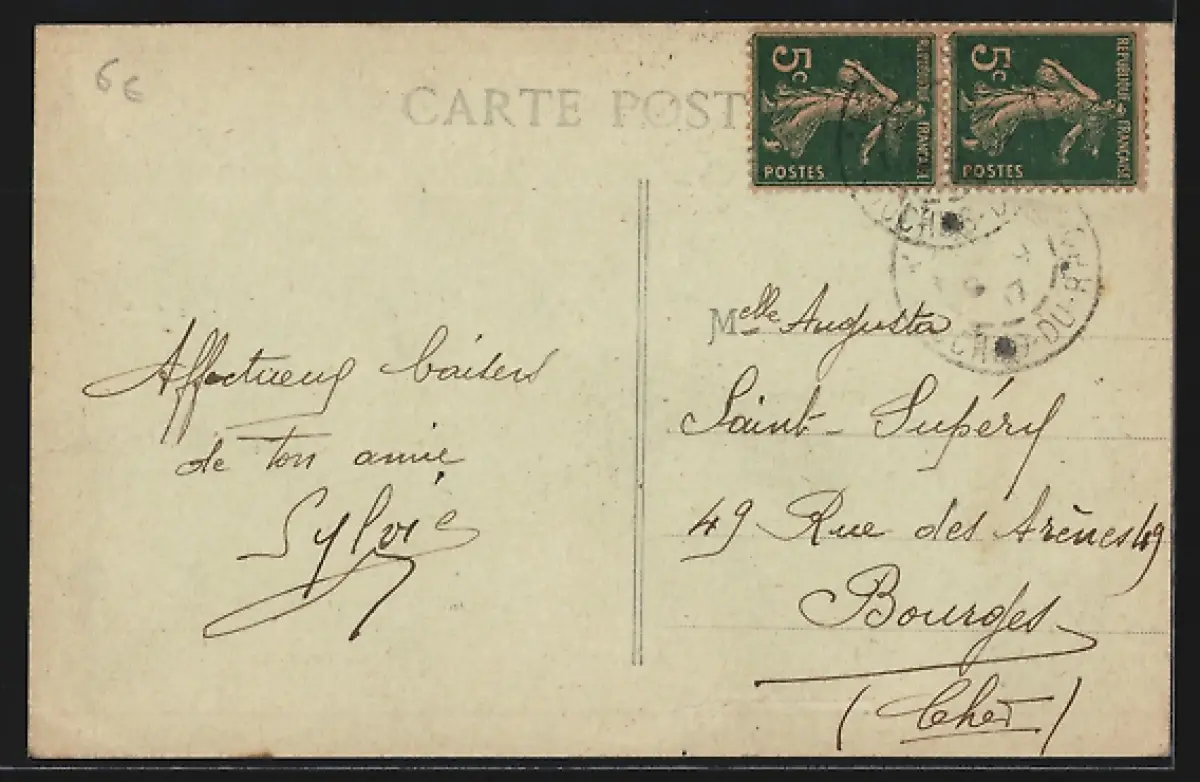 6€
CARTE POST
5c
REPUBLIQUE FRANÇAISE
POSTES
5c
REPUBLIQUE FRANÇAISE
POSTES
DU-R
Affectueux baisers
de ton amie
Sylvie
Melle Augusta
Saint-Supéry
49 Rue des Arènes 49
Bourges
(Cher)